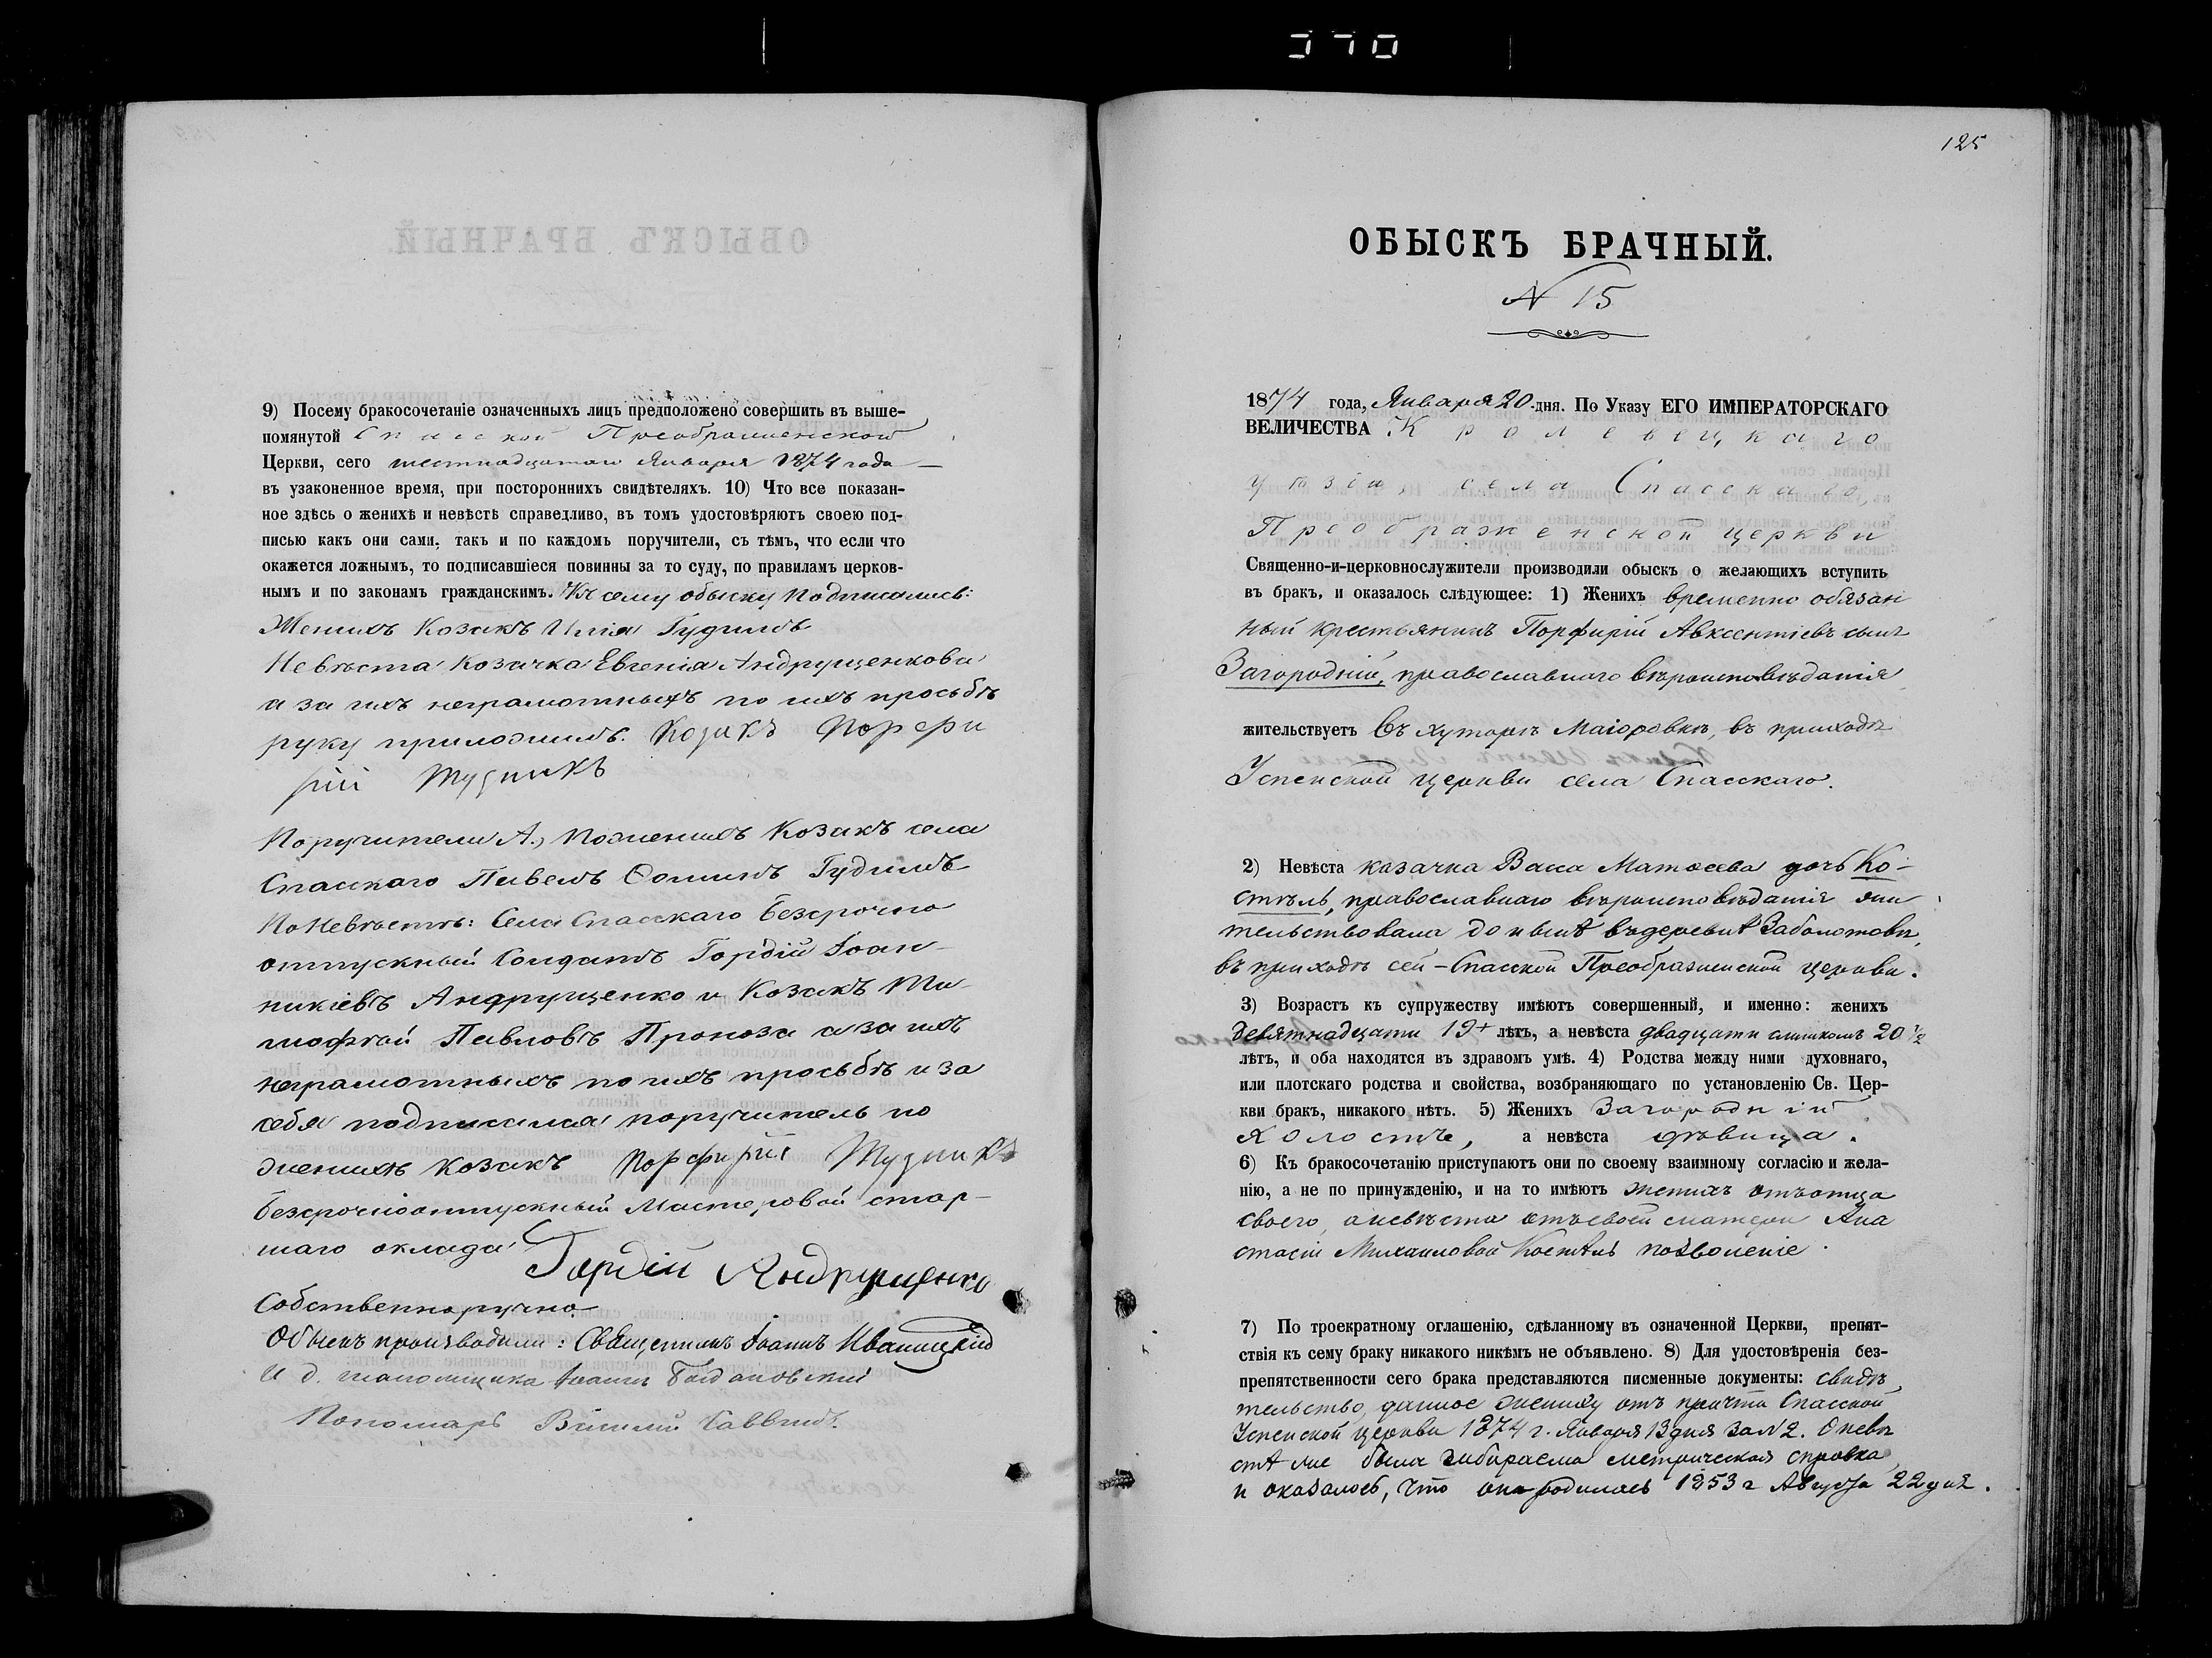 9) Посему бракосочетаніе означенныхъ лицъ предположено совершить въ выше-
помянутой Спасской Преображенской
Церкви, сего шестнадцатаго Января 1874 года
въ узаконенное время, при постороннихъ свидѣтеляхъ. 10) Что все показан-
ное здѣсь о женихѣ и невѣстѣ справедливо, въ томъ удостовѣряютъ своею под-
писью какъ они сами, такъ и по каждомъ поручители, съ тѣмъ, что если что
окажется ложнымъ, то подписавшіеся повинны за то суду, по правиламъ церков-
нымъ и по законамъ гражданскимъ. Къ сему обыску подписались:
Женихъ Козакъ Илія Гудимъ
Невѣста Козачка Евгенія Андрущенкова
а за ихъ неграмотныхъ по ихъ прозьбѣ
руку приложилъ. Козакъ Порфи
рій
Поручители А, по женихѣ Козакъ села
Спасскаго Павелъ Ѳоминъ Гудимъ
По Невѣстѣ: Села Спасскаго безсрочно
отпускный Солдатъ Гордій Іоан-
никіевъ Андрущенко и Козакъ Ти-
моѳей Павловъ Проноза а за ихъ
неграмотныхъ по ихъ просьбѣ и за
себя подписался поручитель по
женихѣ Козакъ Порфирій
безсрочноотпускный Мастеровой стар-
шаго оклада Гордій Андрущенко
Собственноручно
Обыскъ производили: Священникъ Іоаннъ Иваницкій
И. д. псаломщика Іоаннъ Богдановскій
Пономарь Василій Саввичъ
370
125
ОБЫСКЪ БРАЧНЫЙ.
N 15
1874 года, Января 20 дня. По Указу ЕГО ИМПЕРАТОРСКАГО
ВЕЛИЧЕСТВА Кролевецкаго
уѣзда, села Спасскаго,
Преображенской церкви
Священно-и-церковнослужители производили обыскъ о желающихъ вступить
въ бракъ, и оказалось слѣдующее: 1) Женихъ временно обязан
ный крестьянинъ Порфирій Авксентіевъ сынъ
Загородній, православнаго вѣроисповѣданія
жительствуетъ Въ хуторѣ Маіоровкѣ, въ приходѣ
Успенской церкви села Спасскаго.
2) Невѣста казачка Васса Матѳеева дочь Ко-
стѣль, православнаго вѣроисповѣданія жи
тельствовала до нынѣ въ деревнѣ Заболотовѣ,
въ приходѣ сей-Спасской Преображенской церкви.
3) Возрастъ къ супружеству имѣютъ совершенный, и именно: женихъ
девятнадцати 19+ лѣтъ, а невѣста двадцати слишкомъ 20 1/2
лѣтъ, и оба находятся въ здравомъ умѣ. 4) Родства между ними духовнаго,
или плотскаго родства и свойства, возбраняющаго по установленію Св. Цер-
кви бракъ, никакого нѣтъ. 5) Женихъ Загородній
холостъ, а невѣста дѣвица.
6) Къ бракосочетанію приступаютъ они по своему взаимному согласію и жела-
нію, а не по принужденію, и на то имѣютъ женихъ отъ отца
своего, а невѣста отъ своей матери Ана
стасіи Михаиловой Костѣль позволеніе.
7) По троекратному оглашенію, сдѣланному въ означенной Церкви, препят-
ствія къ сему браку никакого никѣмъ не объявлено. 8) Для удостовѣренія без-
препятственности сего брака представляются писменные документы: свидѣ
тельство, данное жениху отъ причта Спасской
Успенской церкви 1874 г. Января 13 дня за N 2. О невѣ
стѣ же была метрическая справка
и оказалось, что она родилась 1853 г Августа 22 дня.